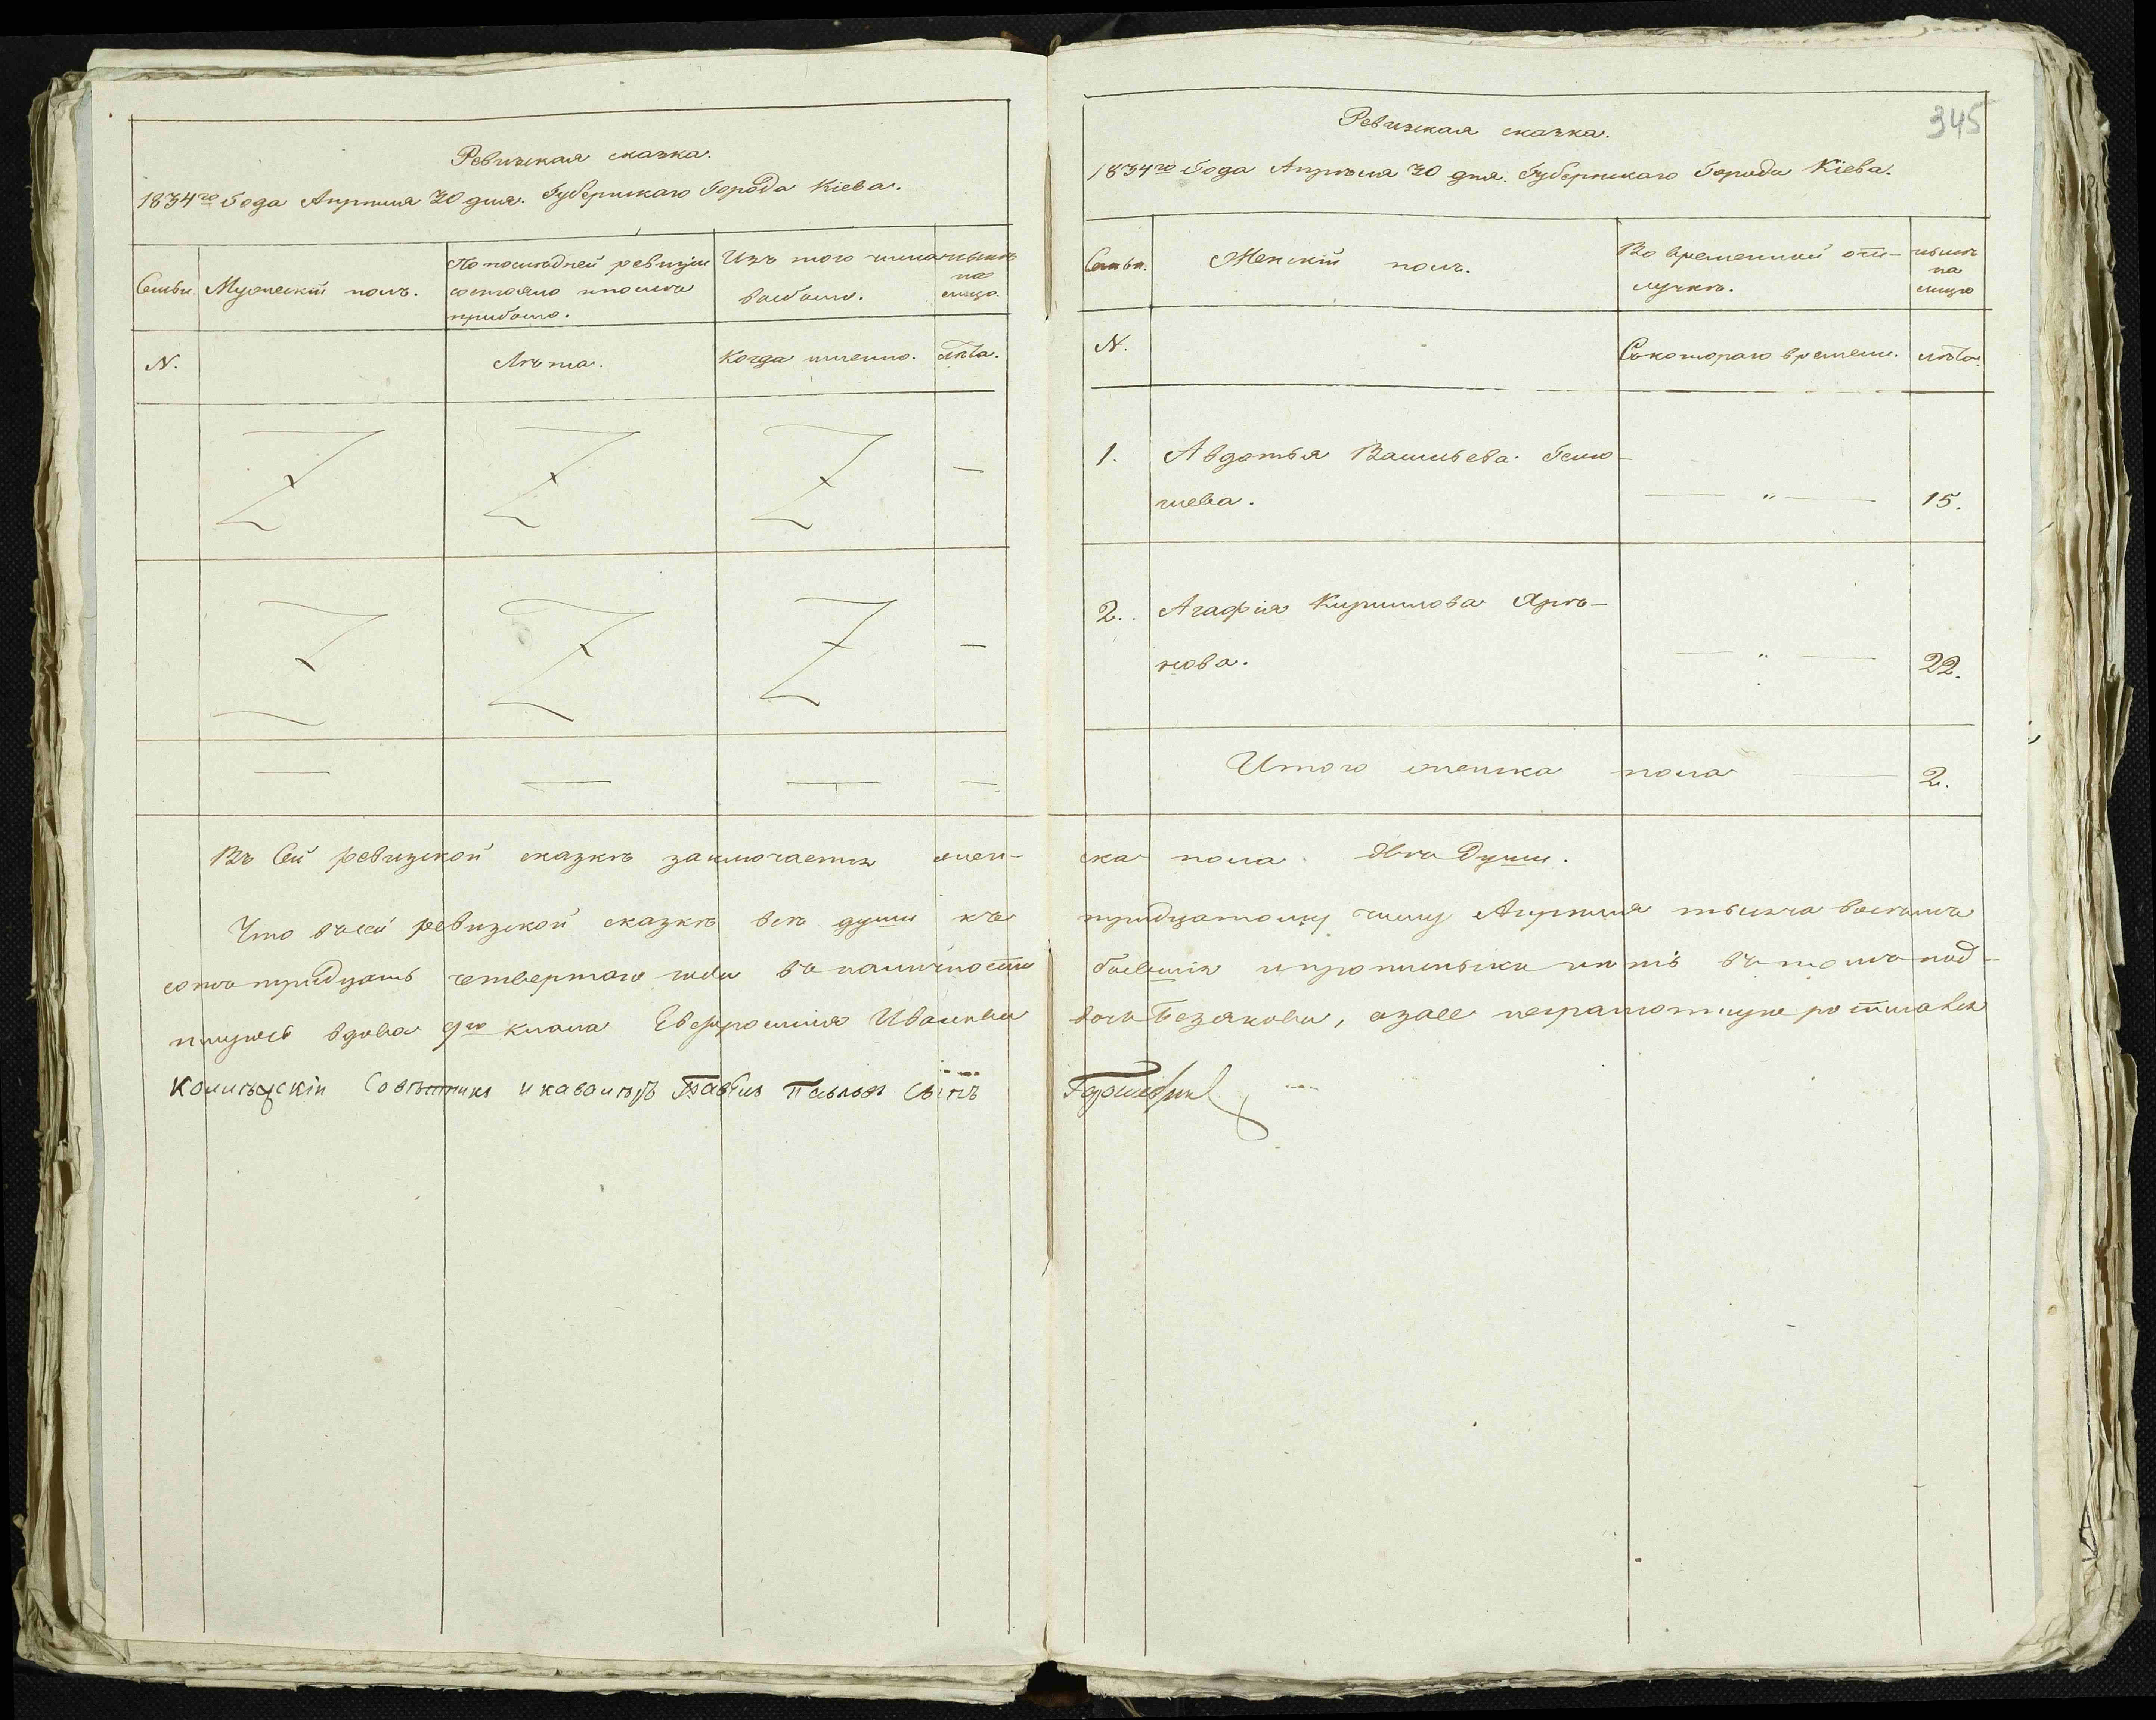 Ревизкая сказка.
1834го Года Апреля 30 дня. Губернскаго Города Кіева.
Семьи. Мужескій полъ. По последней ревизіи состояло и после прибыло. Изъ того числа выбыло. ныне на лицо.
N. Лета. Когда именно. лета.
345
Ревизкая сказка.
1834го Года Апреля 30 дня. Губернскаго Города Кіева.
Семьи. Женскій полъ. Во временной отлучке. ныне на лицо
N. Съ котораго времени. лета.
1. Авдотья Васильева
чева. — " — 15.
2. Агафія Кирилова
нова. — " — 22.
Итого женска пола — 2.
Въ Сей ревизской сказке заключается жен-
ска пола две Души.
Что въ сей ревизской сказке все души къ
тридцатому числу Апреля тысяча восемь
сотъ тридцать четвертаго года въ наличности
бывшія и прописныхъ нетъ въ томъ под-
писуюсь вдова 9го класа Евфросинія Иванова
дочь, а за ее неграмотную росписался
Колежскій Советникъ и кавалеръ Павелъ Павловъ сынъ